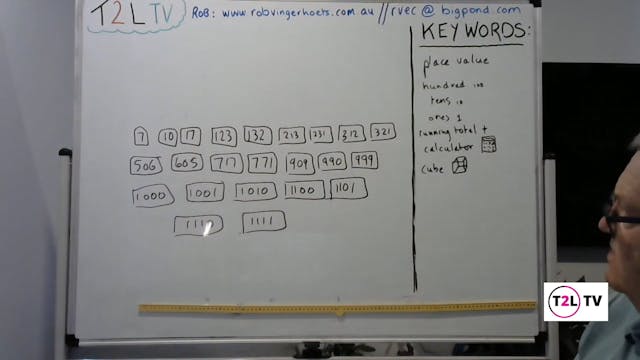 T2L TV Rob: www.robvingerhoets.com.au // rvec @ bigpond.com
KEY WORDS:
place value
hundred 100
tens 10
ones 1
running total +
calculator
cube
7 10 17 123 132 213 231 312 321
506 605 717 771 909 990 999
1000 1001 1010 1100 1101
1110 1111
T2L TV